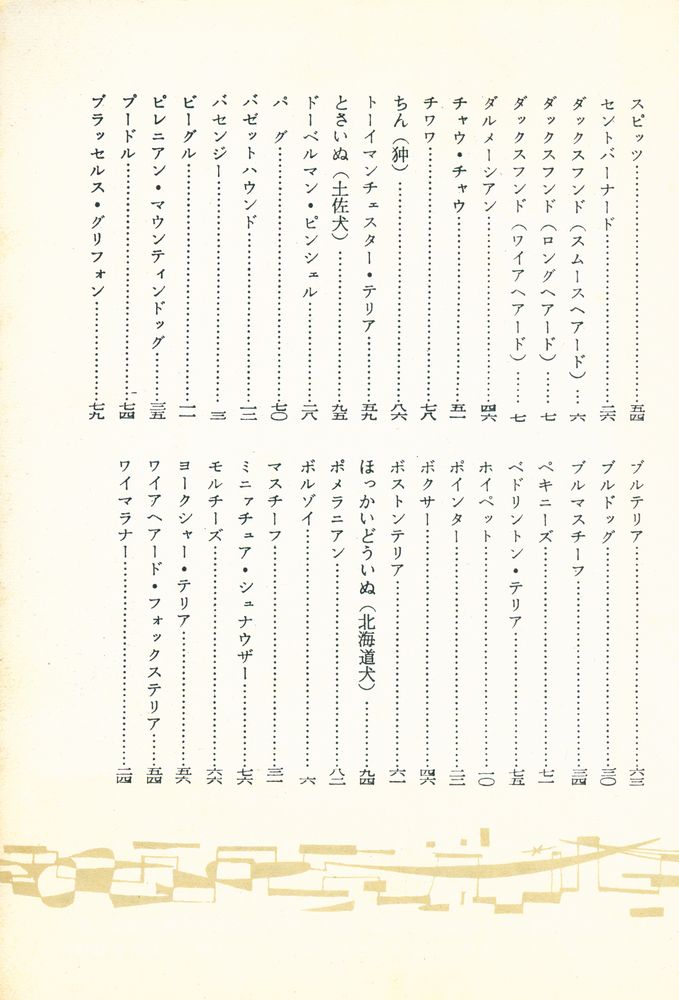 スピッツ……五四
セントバーナード……二六
ダックスフンド（スムースヘアード）……六
ダックスフンド（ロングヘアード）……七
ダックスフンド（ワイアヘアード）……七
ダルメーシアン……四六
チャウ・チャウ……五一
チワワ……七八
ちん（狆）……八六
トーイマンチェスター・テリア……五九
とさいぬ（土佐犬）……九五
ドーベルマン・ピンシェル……二八
パグ……七〇
バゼットハウンド……一三
バセンジー……三
ビーグル……一一
ピレニアン・マウンティンドッグ……三五
プードル……七四
ブラッセルス・グリフォン……七九
ブルテリア……六三
ブルドッグ……三〇
ブルマスチーフ……三四
ペキニーズ……七一
ベドリントン・テリア……七五
ホイペット……一〇
ポインター……二二
ボクサー……四六
ボストンテリア……六一
ほっかいどういぬ（北海道犬）……九四
ポメラニアン……八二
ボルゾイ……六
マスチーフ……三一
ミニァチュア・シュナウザー……七六
モルチーズ……六六
ヨークシャー・テリア……五六
ワイアヘアード・フォックステリア……五四
ワイマラナー……二四